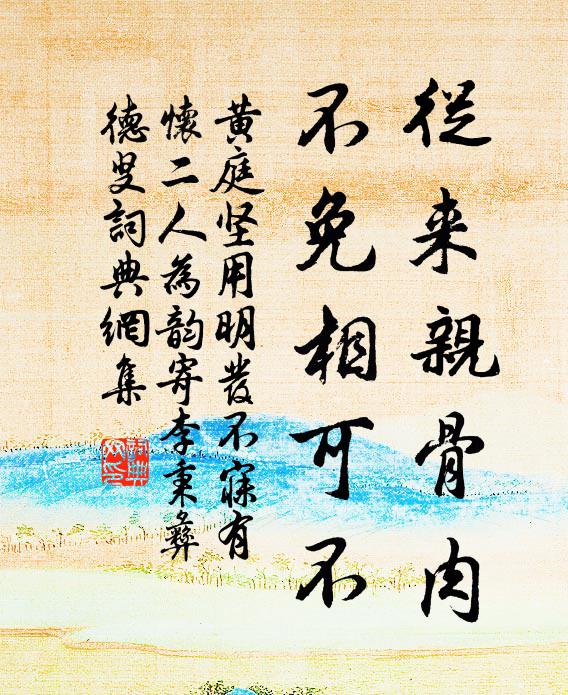 從来親骨肉
不免相可不
黄庭坚用明發不寐有
懷二人為韵寄李秉彝
德叟詞典網集